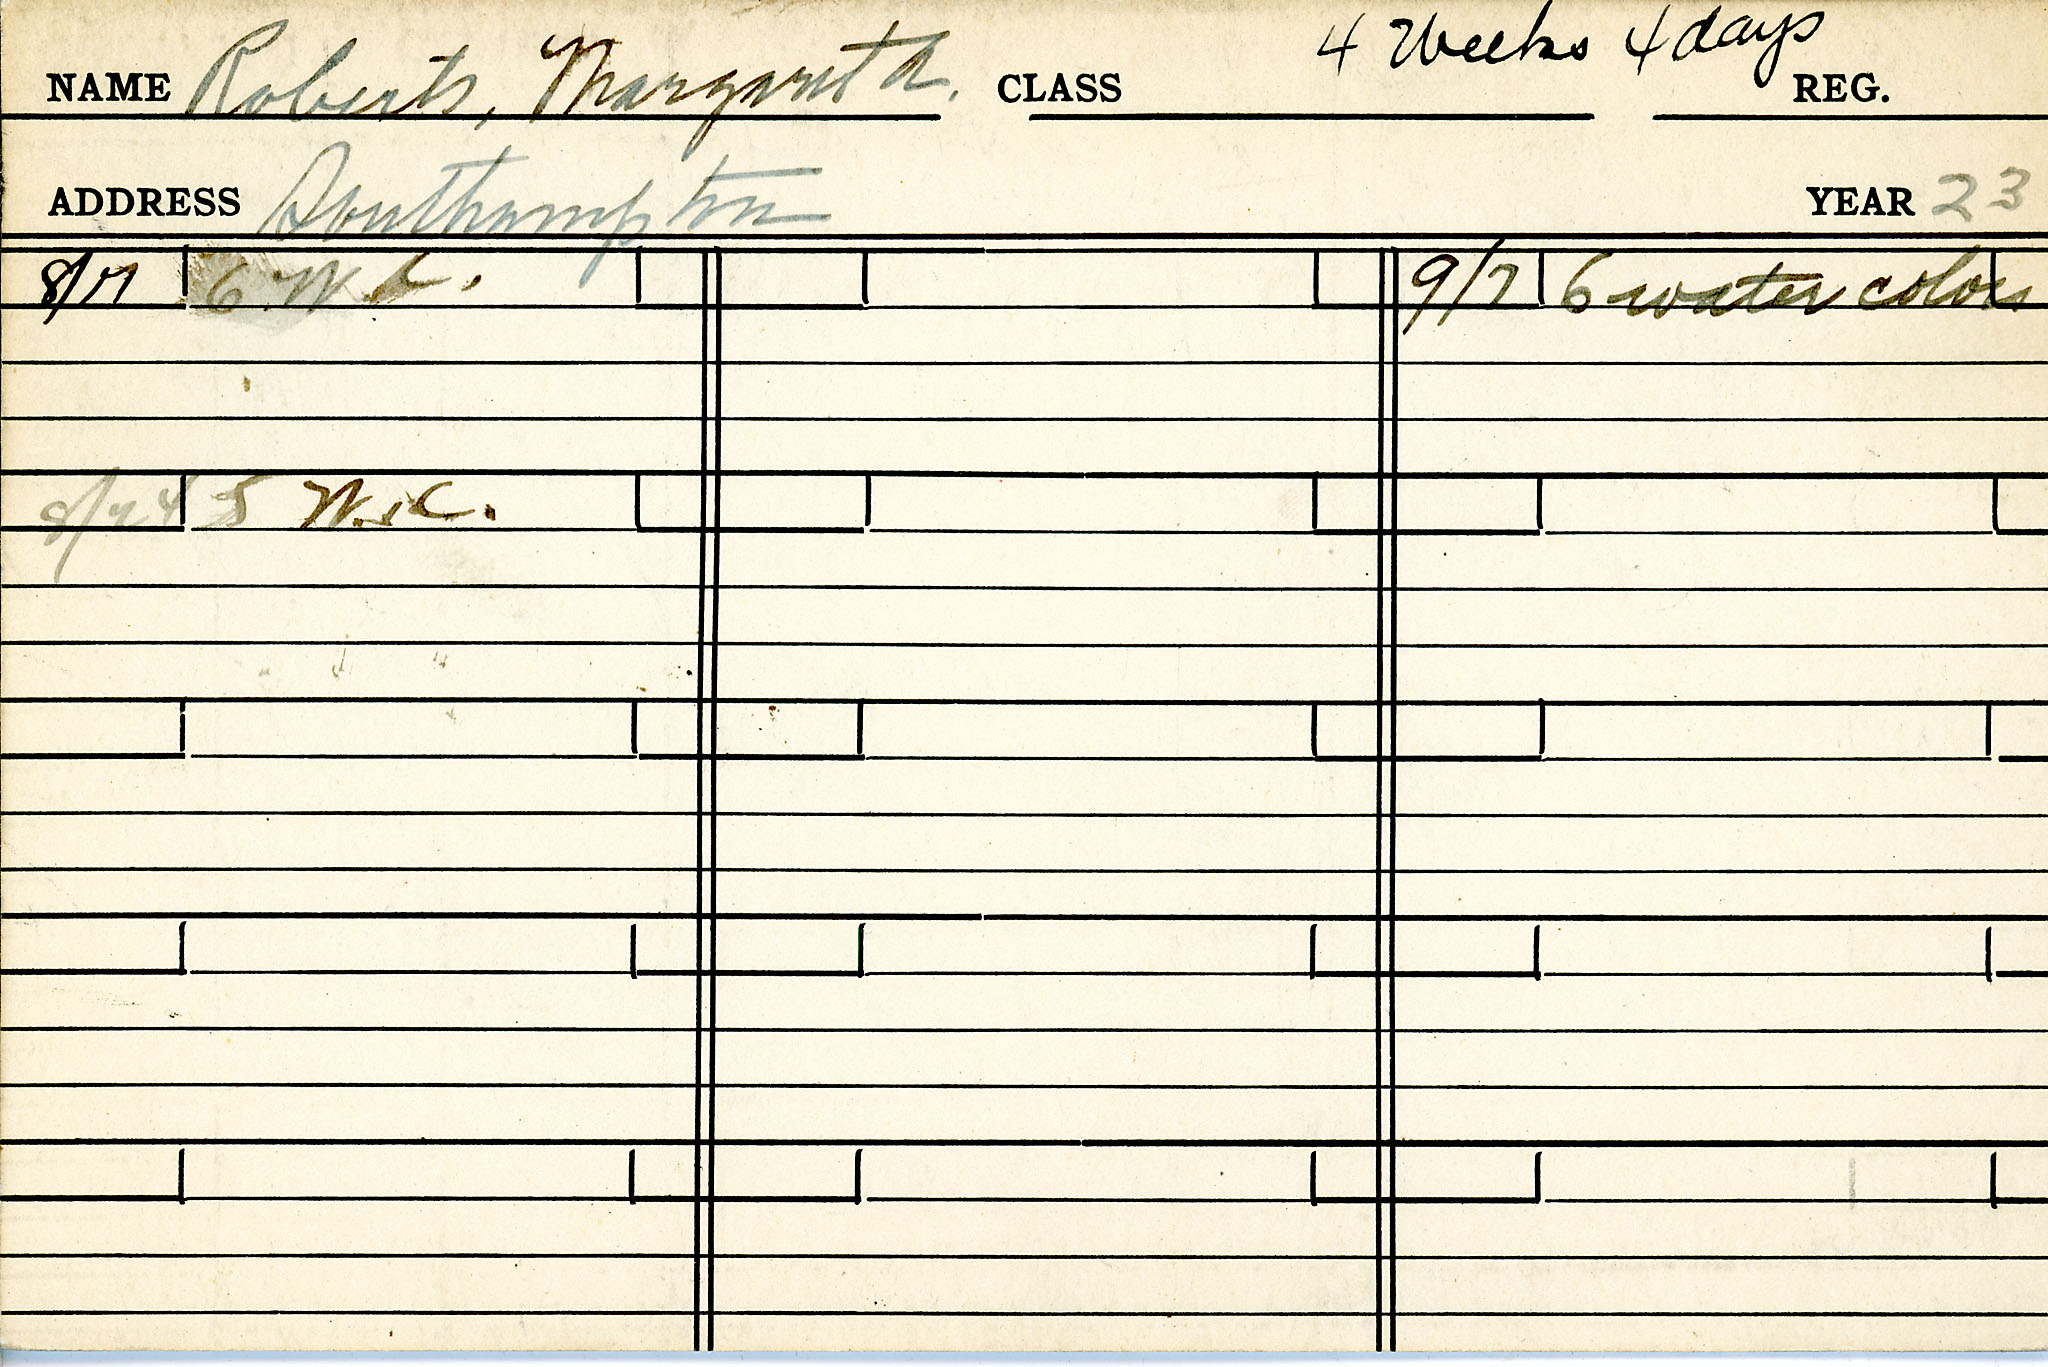 4 Weeks 4 days
NAME Roberts, Margaret A. CLASS REG.
ADDRESS Southampton YEAR 23
8/17 6 W.C. 9/7 6 water colors
8/24 5 W.C.